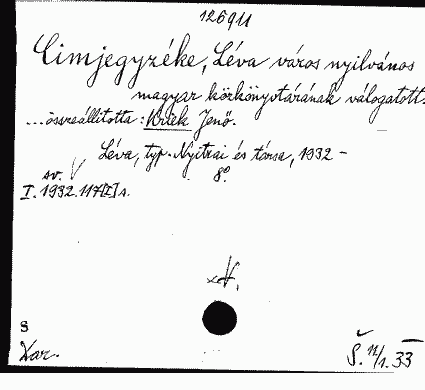 126911
Cimjegyzéke, Léva város nyilvános
magyar közkönyvtárának válogatott.
...összeállította: Jenő.
Léva, typ. Nyitrai és társa, 1932 –
8°.
sv.
I. 1932. 117[1] s.
S
Kar.
Š. 11/1. 33